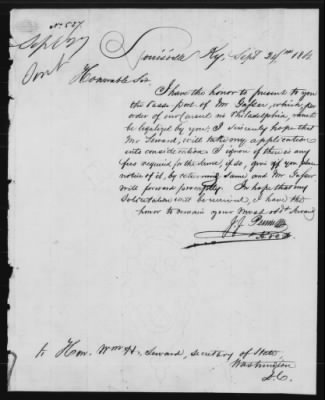 No 527.
Louisville Ky. Sept 24th 1862
Honorable Sir
I have the honor to present to you
the Pass port of Mr Gafser, which, per
order of our Consul in Philadelphia, must
be legalized by you; I sincerely hope that
Mr Seward, will take my application
into consideration. I ignore if there is any
fees required for the same, if so, give if you please
notice of it, by returning same and Mr Gafser
will forward promptly. In hope that my
Solicitation will be received, I have the
honor to remain your most obdt Servant
J J
To Hon. Wm H. Seward, Secretary of State,
Washington
D.C.